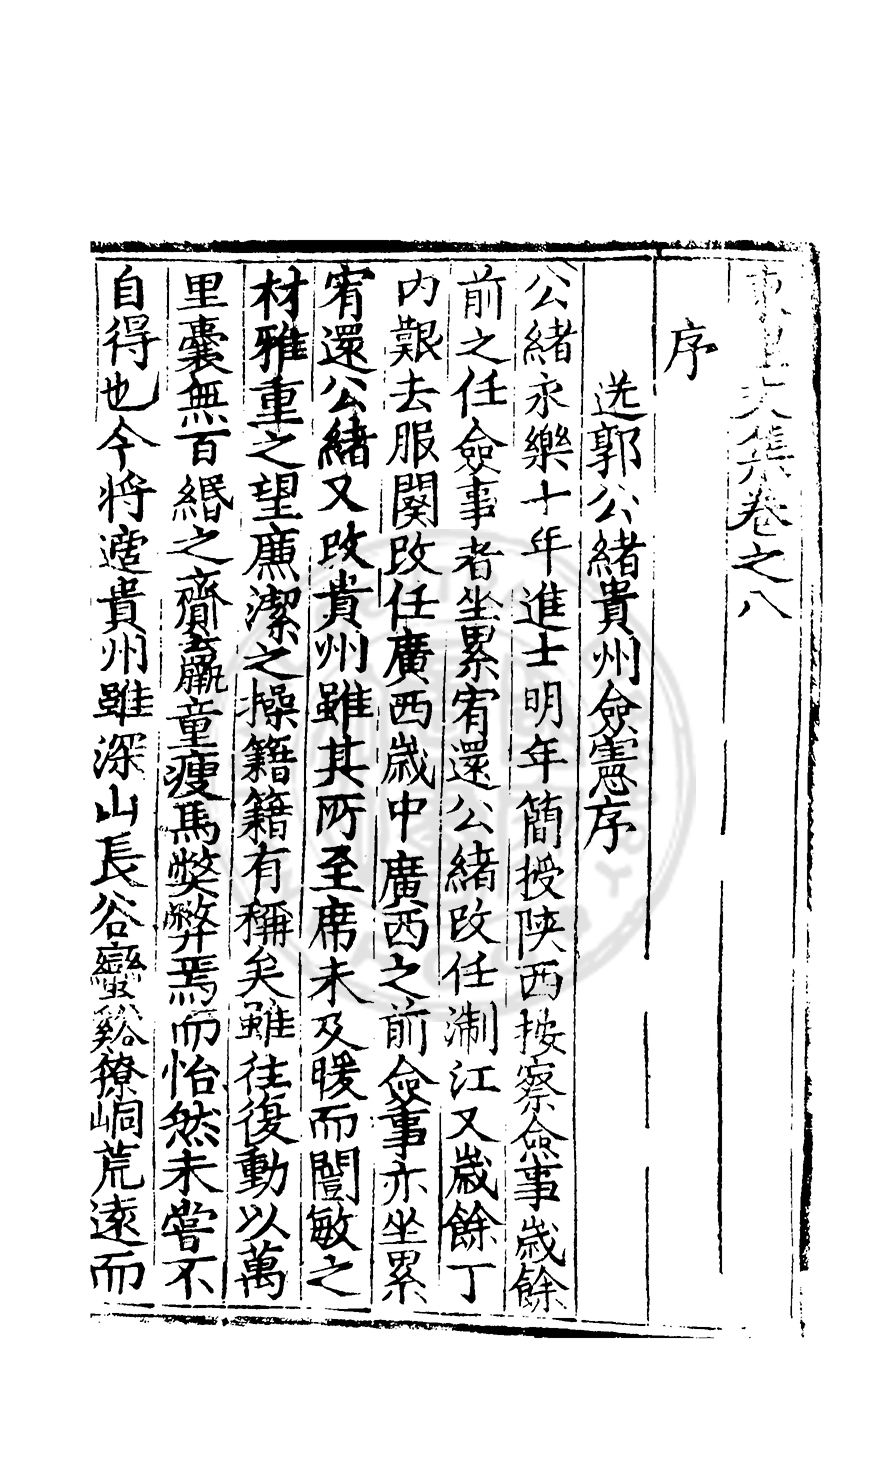 東里文集卷之八
序
送郭公緒貴州僉憲序
公緒永樂十年進士明年簡授陝西按察僉事歲餘
前之任僉事者坐累宥還公緒改任浙江又歲餘丁
内艱去服闋改任廣西歲中廣西之前僉事亦坐累
宥還公緒又改貴州雖其所至席未及暖而闓敏之
材雅重之望廉潔之操籍籍有稱矣雖往復動以萬
里囊無百緡之齎羸童瘦馬獘獘焉而怡然未嘗不
自得也今将適貴州雖深山長谷蠻谿獠峒荒遠而